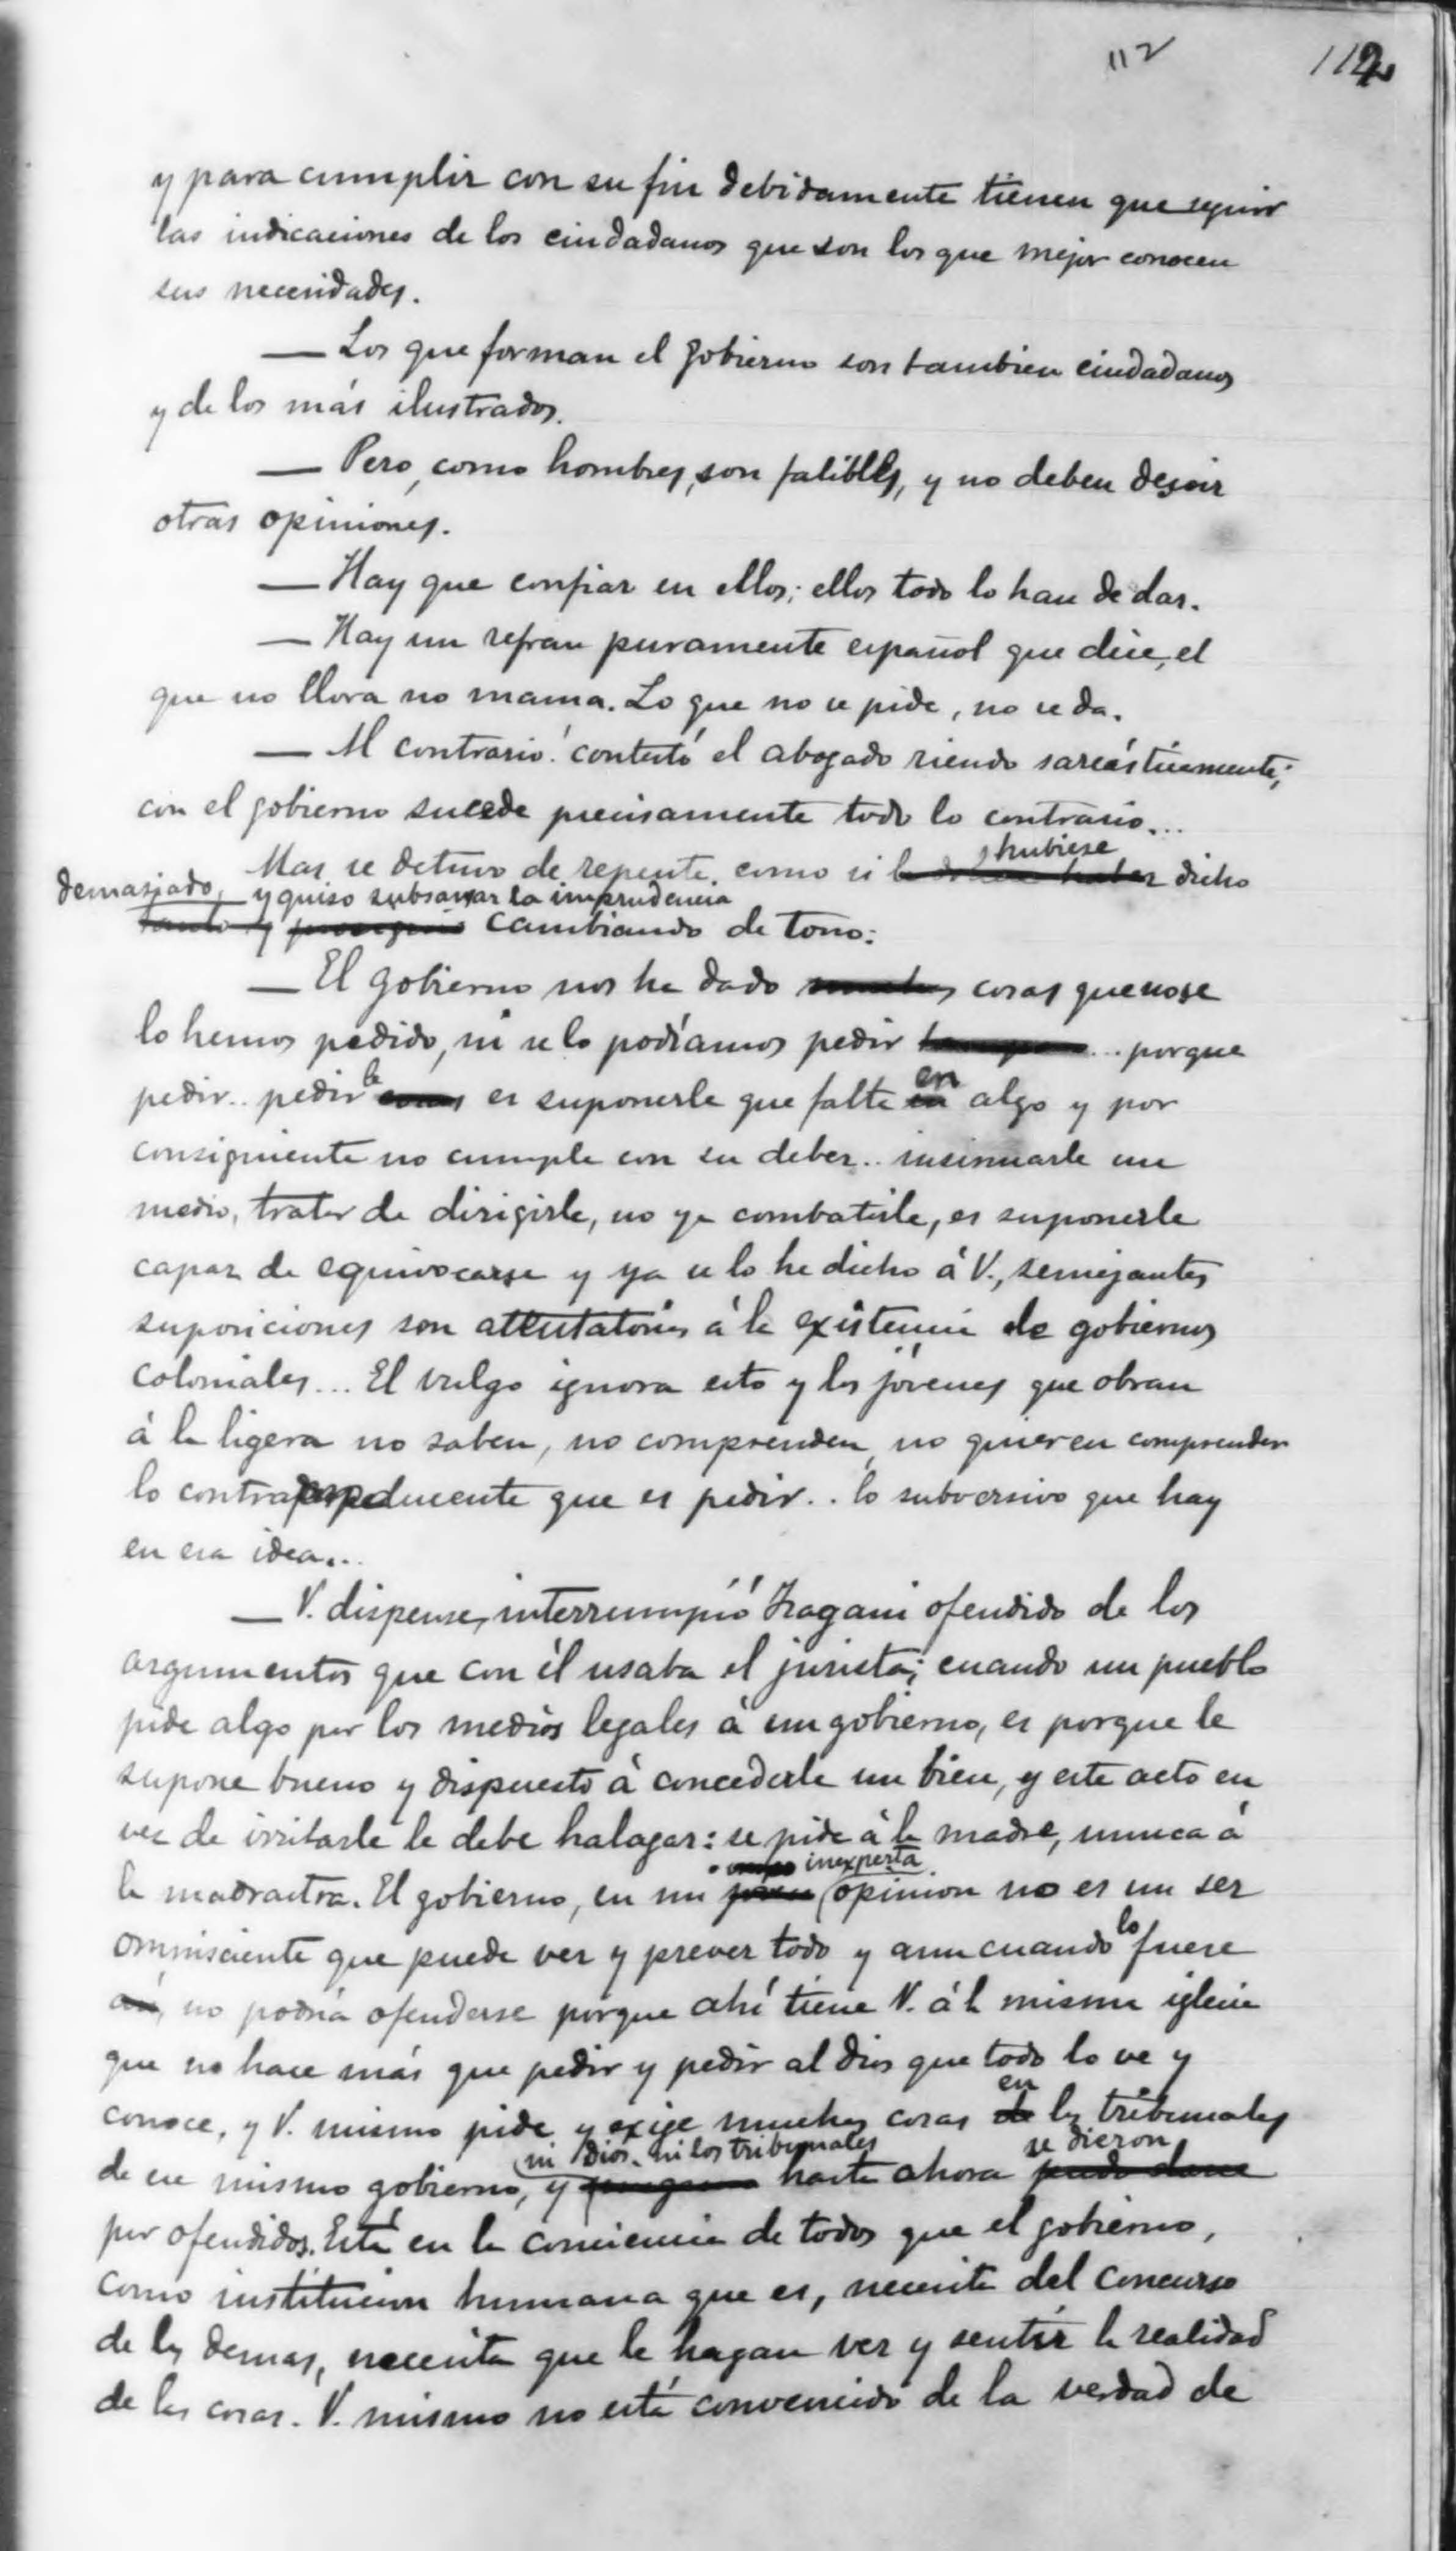 112
112
y para cumplir con su fin debidamente tienen que seguir
las indicaciones de los ciudadanos que son los que mejor conocen
sus necesidades.
— Los que forman el gobierno son tambien ciudadanos
y de los más ilustrados.
— Pero, como hombres, son falibles, y no deben desoir
otras opiniones.
— Hay que confiar en ellos; ellos todo lo han de dar.
— Hay un refran puramente español que dice, el
que no llora no mama. Lo que no se pide, no se da.
— Al contrario! contestó el abogado riendo sarcásticamente;
con el gobierno sucede precisamente todo lo contrario...
hubiese
Mas se detuvo de repente como si dicho
demasiado, y quiso subsanar la imprudencia
tanto y prosiguió cambiando de tono:
— El gobierno nos ha dado muchas cosas que no se
lo hemos pedido, ni se lo podíamos pedir ... porque
pedir.. pedirle es suponerle que falte en algo y por
consiguiente no cumple con su deber.. insinuarle un
medio, tratar de dirigirle, no ya combatirle, es suponerle
capaz de equivocarse y ya se lo he dicho á V., semejantes
suposiciones son attentatorias á la existencia de gobiernos
coloniales... El vulgo ignora esto y los jóvenes que obran
á la ligera no saben, no comprenden, no quieren comprender
lo contraproducente que es pedir.. lo subversivo que hay
en esa idea...
— V. dispense, interrumpió Isagani ofendido de los
argumentos que con él usaba el jurista; cuando un pueblo
pide algo por los medios legales á un gobierno, es porque le
supone bueno y dispuesto á concederle un bien, y este acto en
vez de irritarle le debe halagar: se pide á la madre, nunca á
inexperta
la madrastra. El gobierno, en mi joven opinion no es un ser
omnisciente que puede ver y prever todo y aun cuando lo fuere
así, no podría ofenderse porque ahí tiene V. á la misma iglesia
que no hace más que pedir y pedir al dios que todo lo ve y
en
conoce, y V. mismo pide y exige muchas cosas de los tribunales
ni Dios, ni los tribunales se dieron
de ese mismo gobierno, y hasta ahora pudo darse
por ofendidos. Está en la conciencia de todos que el gobierno,
como institucion humana que es, necesita del concurso
de los demas, necesita que le hagan ver y sentir la realidad
de las cosas. V. mismo no está convencido de la verdad de